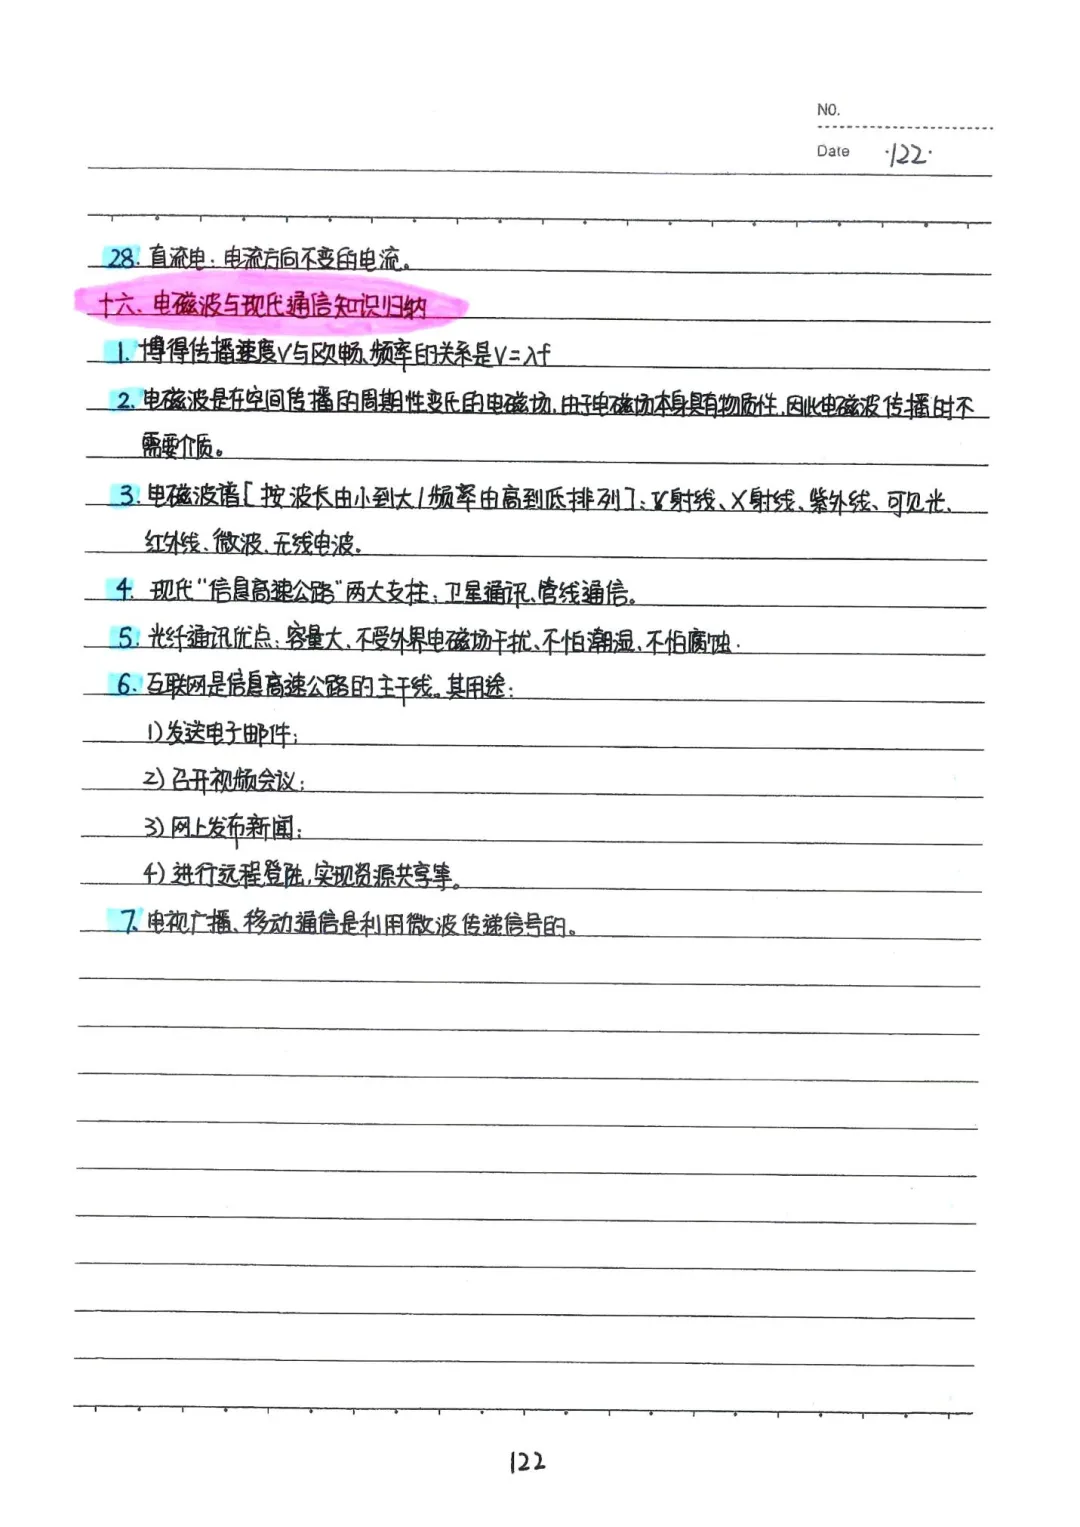 NO.
Date ·122·
28. 直流电：电流方向不变的电流。
十六、电磁波与现代通信知识归纳
1. 博得传播速度V与欧畅、频率的关系是V=λf
2. 电磁波是在空间传播的周期性变化的电磁场，由于电磁场本身具有物质性，因此电磁波传播时不
需要介质。
3. 电磁波谱[按波长由小到大/频率由高到低排列]：γ射线、X射线、紫外线、可见光、
红外线、微波、无线电波。
4. 现代“信息高速公路”两大支柱：卫星通讯、管线通信。
5. 光纤通讯优点：容量大、不受外界电磁场干扰、不怕潮湿、不怕腐蚀.
6. 互联网是信息高速公路的主干线。其用途：
1)发送电子邮件；
2)召开视频会议；
3)网上发布新闻；
4)进行远程登陆，实现资源共享等。
7. 电视广播、移动通信是利用微波传递信号的。
122